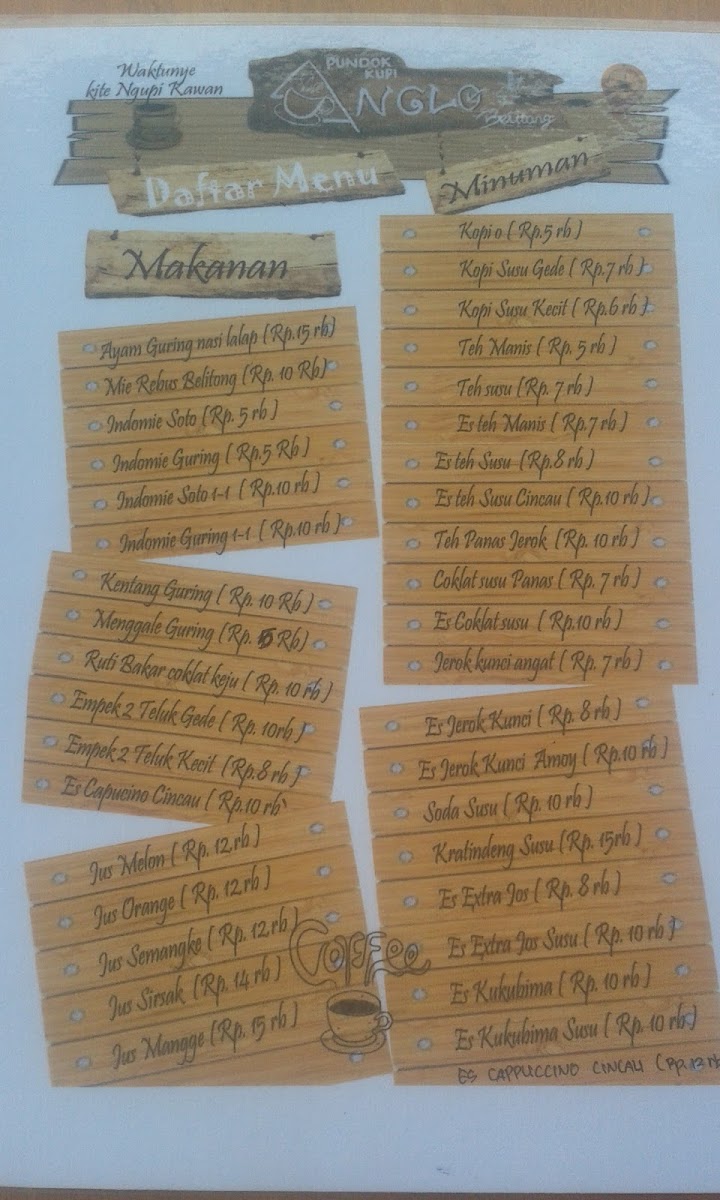 Waktunye
kite Ngupi Kawan
PUNDOK
KUPI
ANGLO
Belitong
Daftar Menu
Makanan
Ayam Guring nasi lalap (Rp.15 rb)
Mie Rebus Belitong (Rp. 10 Rb)
Indomie Soto (Rp. 5 rb)
Indomie Guring (Rp.5 Rb)
Indomie Soto 1-1 (Rp.10 rb)
Indomie Guring 1-1 (Rp.10 rb)
Kentang Guring (Rp. 10 Rb)
Menggale Guring (Rp. 5 Rb)
Ruti Bakar coklat keju (Rp. 10 rb)
Empek2 Teluk Gede (Rp. 10rb)
Empek2 Teluk Kecit (Rp.8 rb)
Es Capucino Cincau (Rp.10 rb
Jus Melon (Rp. 12 rb)
Jus Orange (Rp. 12 rb)
Jus Semangke (Rp. 12 rb)
Jus Sirsak (Rp. 14 rb)
Jus Mangge (Rp. 15 rb)
Coffee
Minuman
Kopi o (Rp.5 rb)
Kopi Susu Gede (Rp.7 rb)
Kopi Susu Kecit (Rp.6 rb)
Teh Manis (Rp. 5 rb)
Teh susu (Rp. 7 rb)
Es teh Manis (Rp.7 rb)
Es teh Susu (Rp.8 rb)
Es teh Susu Cincau (Rp.10 rb)
Teh Panas Jerok (Rp. 10 rb)
Coklat susu Panas (Rp. 7 rb)
Es Coklat susu (Rp.10 rb)
Jerok kunci angat (Rp. 7 rb)
Es Jerok Kunci (Rp. 8 rb)
Es Jerok Kunci Amoy (Rp.10 rb)
Soda Susu (Rp. 10 rb)
Kratindeng Susu (Rp. 15rb)
Es Extra Jos (Rp. 8 rb)
Es Extra Jos Susu (Rp. 10 rb)
Es Kukubima (Rp. 10 rb)
Es Kukubima Susu (Rp. 10 rb)
ES CAPPUCCINO CINCAU (Rp.12 rb